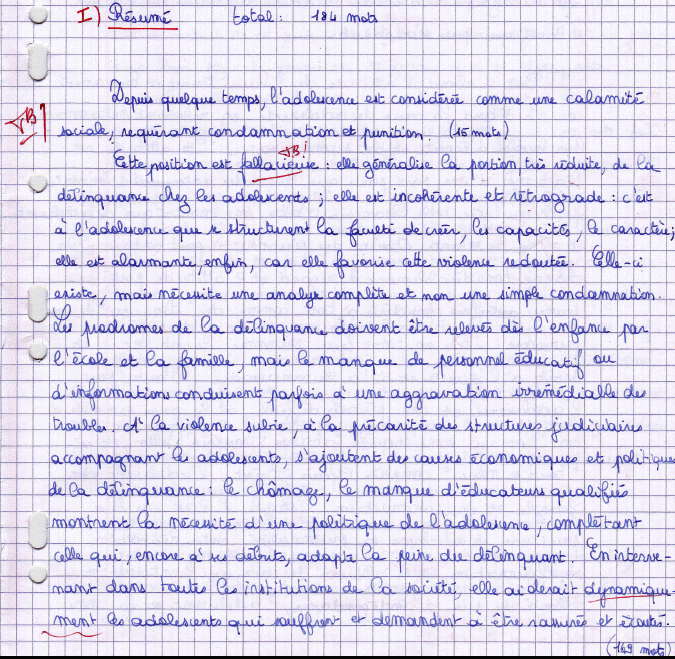 I) Résumé total : 184 mots
Depuis quelque temps, l'adolescence est considérée comme une calamité
TB
sociale, requérant condamnation et punition. (15 mots)
TB!
Cette position est fallacieuse : elle généralise la portion, très réduite, de la
délinquance chez les adolescents ; elle est incohérente et rétrograde : c'est
à l'adolescence que se structurent la faculté de créer, les capacités, le caractère ;
elle est alarmante, enfin, car elle favorise cette violence redoutée. Celle-ci
existe, mais nécessite une analyse complète et non une simple condamnation.
Les prodromes de la délinquance doivent être relevés dès l'enfance par
l'école et la famille, mais le manque de personnel éducatif ou
d'informations conduisent parfois à une aggravation irrémédiable des
troubles. A la violence subie, à la précarité des structures judiciaires
accompagnant les adolescents, s'ajoutent des causes économiques et politiques
de la délinquance : le chômage, le manque d'éducateurs qualifiés
montrent la nécessité d'une politique de l'adolescence, complétant
celle qui, encore à ses débuts, adapte la peine du délinquant. En interve-
nant dans toutes les institutions de la société, elle aiderait dynamique-
ment les adolescents qui souffrent et demandent à être rassurés et écoutés.
(149 mots)